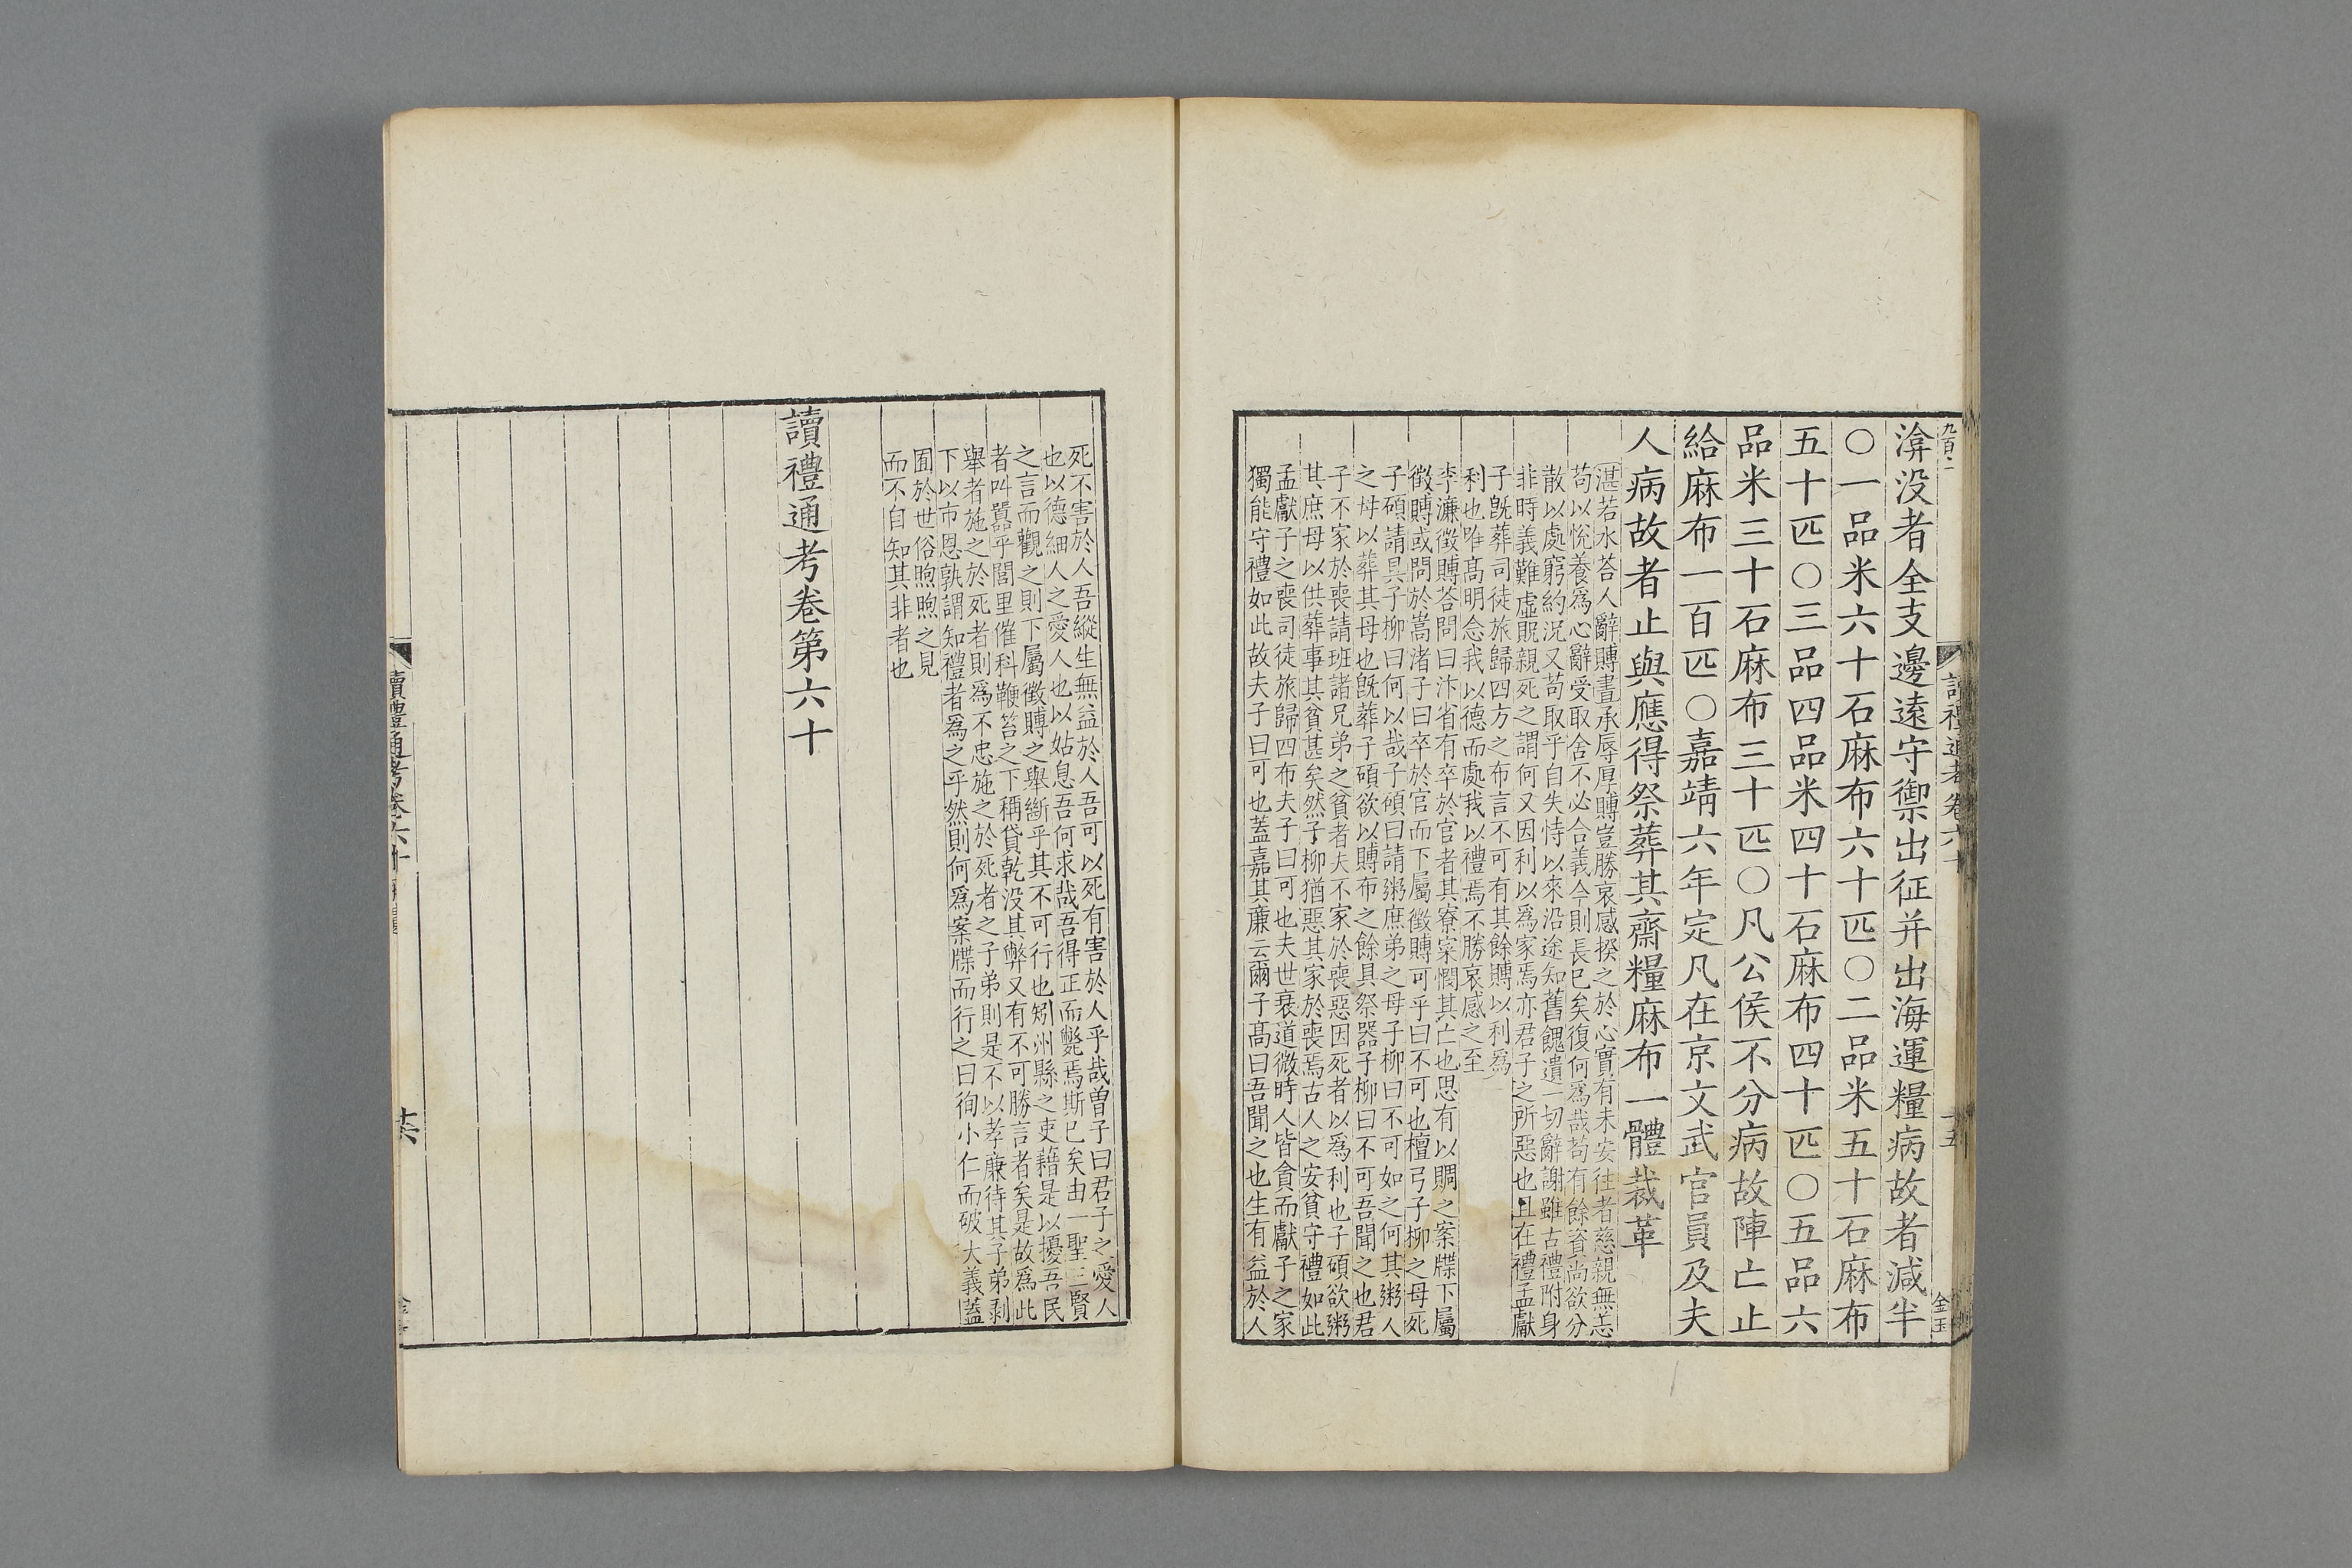 渰没者全支邊遠守禦出征并出海運糧病故者減半
〇一品米六十石麻布六十匹〇二品米五十石麻布
五十匹〇三品四品米四十石麻布四十匹〇五品六
品米三十石麻布三十匹〇凡公侯不分病故陣亡止
給麻布一百匹〇嘉靖六年定凡在京文武官員及夫
人病故者止與應得祭葬其齋糧麻布一體裁革
湛若水荅人辭賻書承辱厚賻豈勝哀感揆之於心實有未安往者慈親無恙
苟以悅養爲心辭受取舍不必合義今則長已矣復何爲哉苟有餘資尚欲分
散以處窮約況又苟取乎自失恃以來沿途知舊餽遺一切辭謝雖古禮附身
非時義難虛貺親死之謂何又因利以爲家焉亦君子之所惡也且在禮孟獻
子旣葬司徒旅歸四方之布言不可有其餘賻以利爲
利也唯高明念我以德而處我以禮焉不勝哀感之至
李濂徵賻荅問曰汴省有卒於官者其寮寀憫其亡也思有以賙之案牒下屬
徵賻或問於嵩渚子曰卒於官而下屬徵賻可乎曰不可也檀弓子柳之母死
子碩請具子柳曰何以哉子碩曰請粥庶弟之母子柳曰不可如之何其粥人
之母以葬其母也旣葬子碩欲以賻布之餘具祭器子柳曰不可吾聞之也君
子不家於喪請班諸兄弟之貧者夫不家於喪惡因死者以爲利也子碩欲粥
其庶母以供葬事其貧甚矣然子柳猶惡其家於喪焉古人之安貧守禮如此
孟獻子之喪司徒旅歸四布夫子曰可也夫世衰道微時人皆貪而獻子之家
獨能守禮如此故夫子曰可也蓋嘉其廉云爾子髙曰吾聞之也生有益於人
讀禮通考卷六十
十五
死不害於人吾縱生無益於人吾可以死有害於人乎哉曽子曰君子之愛人
也以德細人之愛人也以姑息吾何求哉吾得正而斃焉斯已矣由一聖三賢
之言而觀之則下屬徵賻之舉斷乎其不可行也矧州縣之吏藉是以擾吾民
者叫囂乎閭里催科鞭笞之下稱貸乾没其弊又有不可勝言者矣是故爲此
舉者施之於死者則爲不忠施之於死者之子弟則是不以孝廉待其子弟剥
下以市恩孰謂知禮者爲之乎然則何爲案牒而行之曰徇小仁而破大義蓋
囿於世俗煦煦之見
而不自知其非者也
讀禮通考卷第六十
讀禮通考卷六十
十六